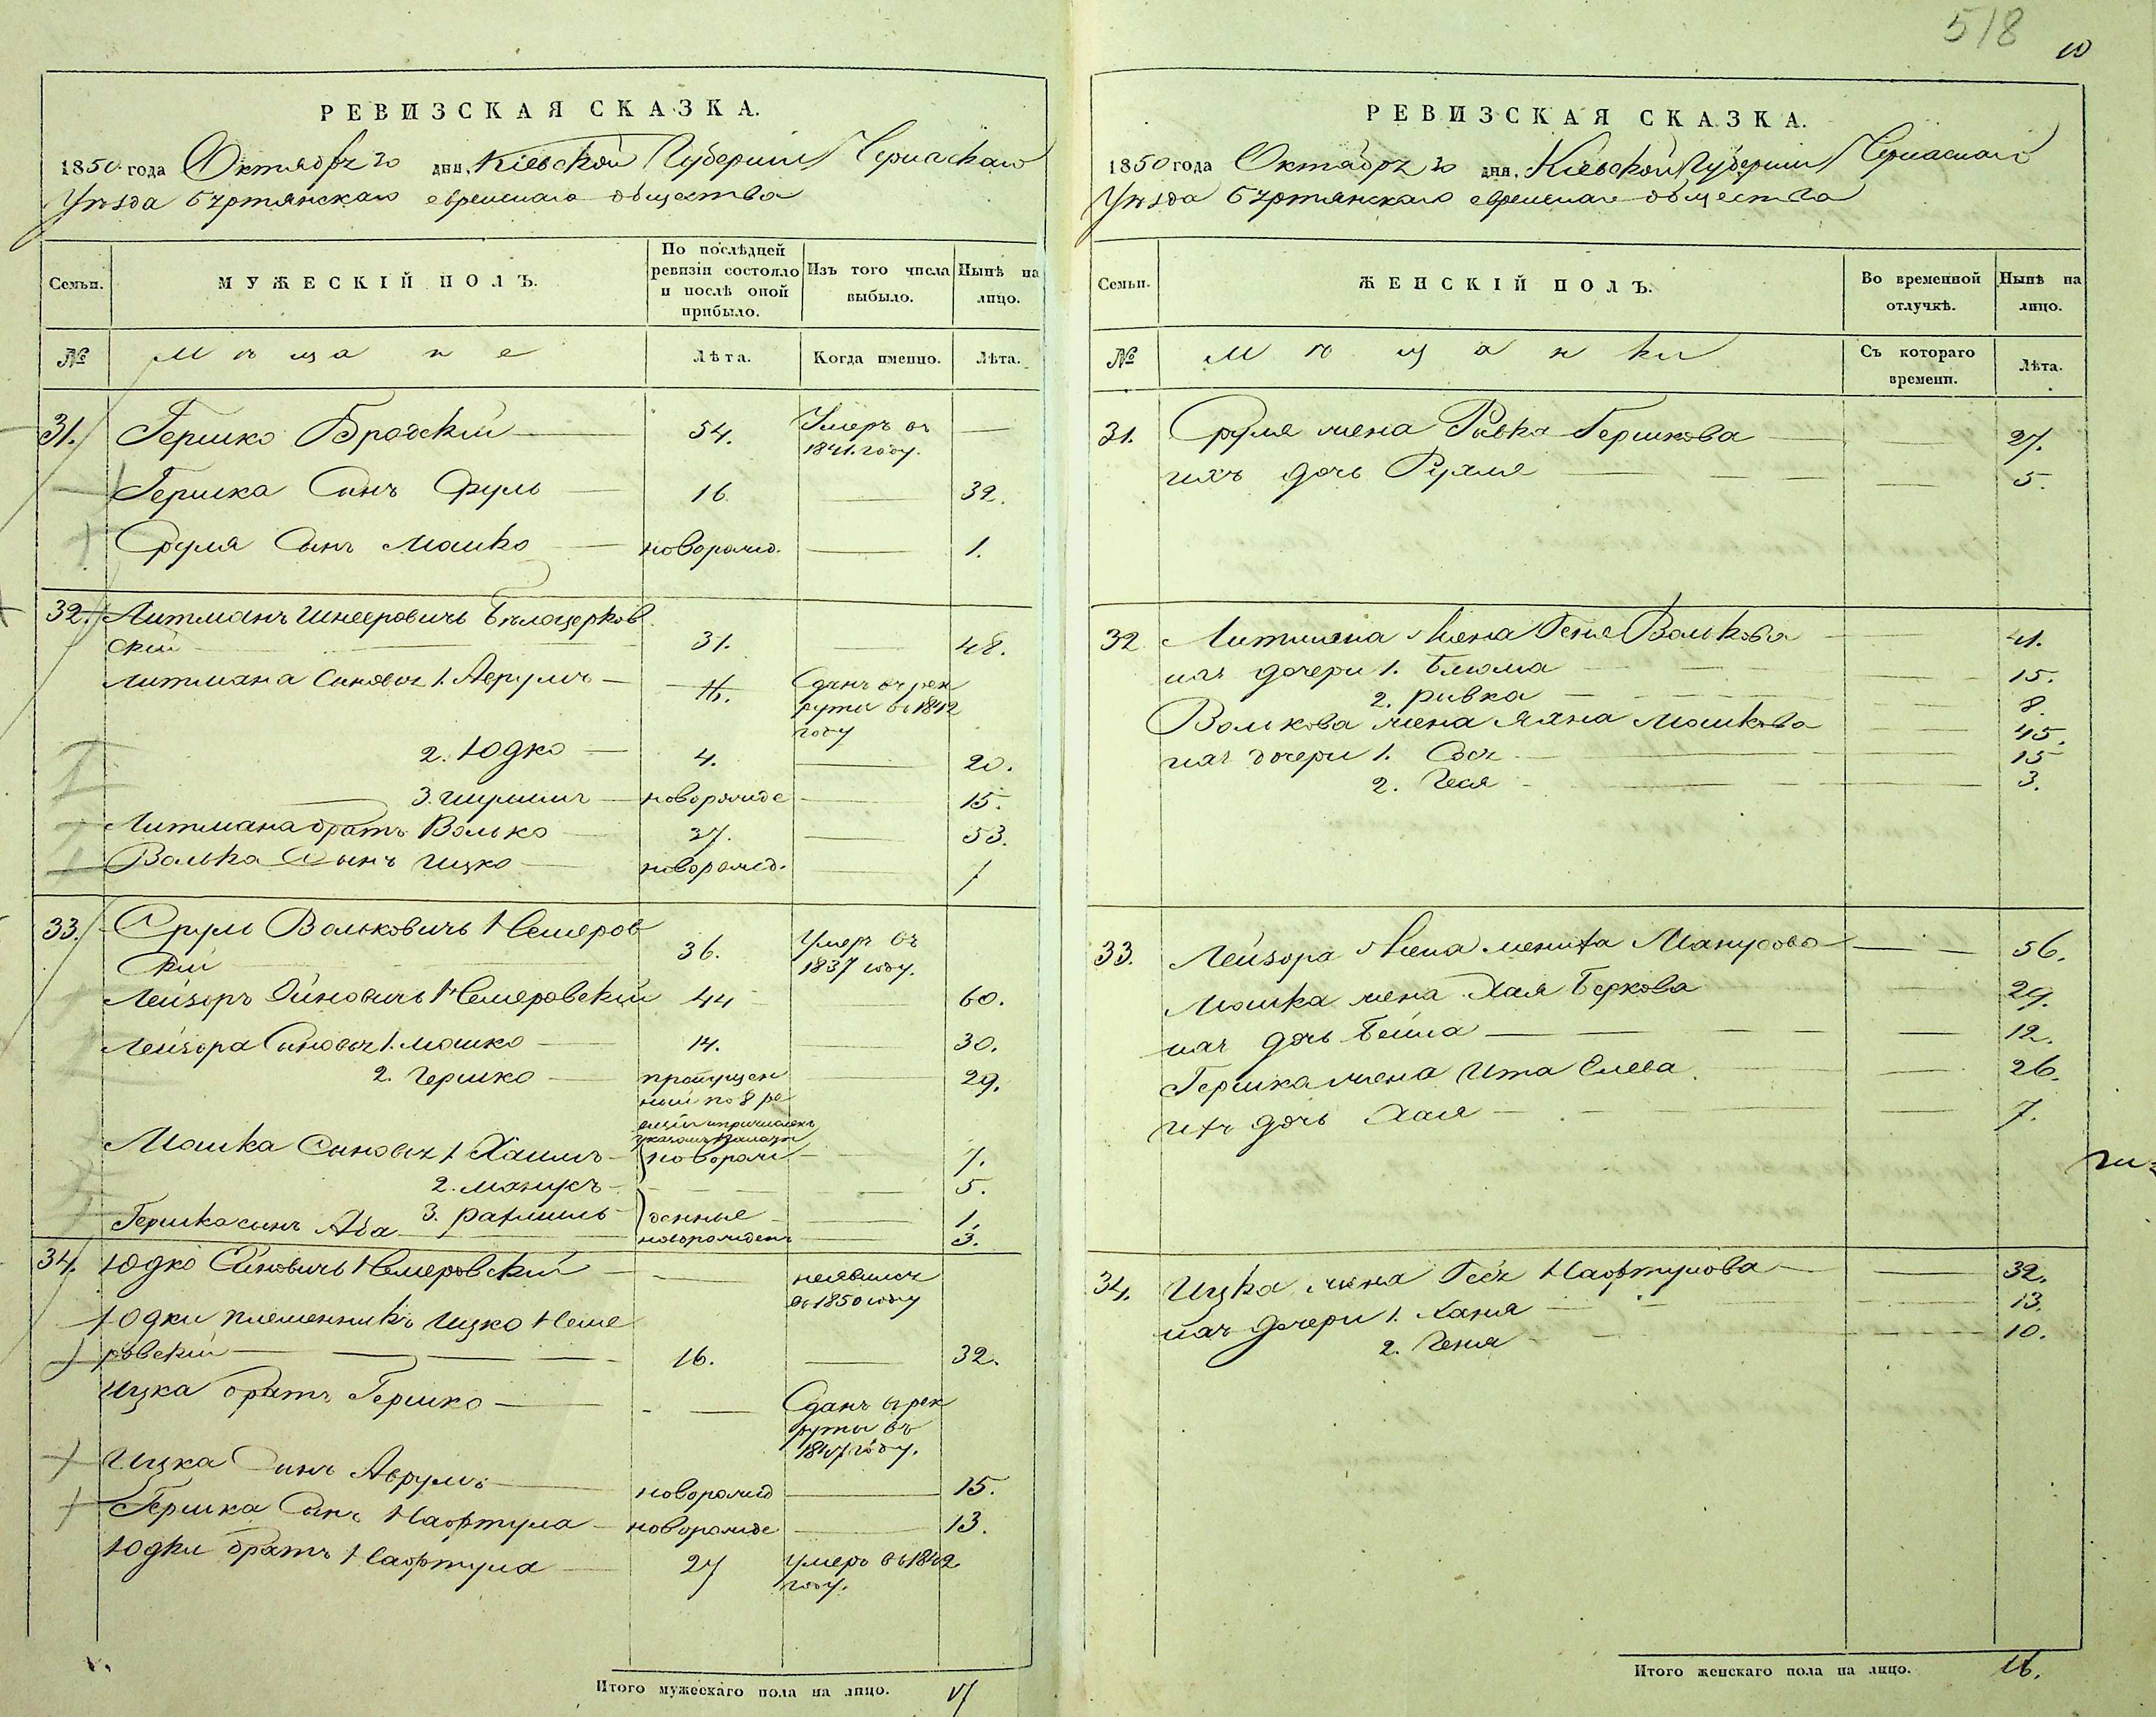 518
10
РЕВИЗСКАЯ СКАЗКА.
1850 года Октября 30 дня, Кіевской Губерніи Черкаскаго
Уѣзда Буртянскаго еврейскаго общества
Семьи.
МУЖЕСКІЙ ПОЛЪ.
По послѣдней ревизіи состояло и послѣ оной прибыло.
Изъ того числа выбыло.
Нынѣ на лицо.
№
Мѣщане
Лѣта.
Когда именно.
Лѣта.
31. Гершко Бродскій 54. Умеръ въ 1841 году. —
Гершка Сынъ Сруль 16 — 32.
Сруля Сынъ Мошко новорожд. — 1.
32. Литманъ Шнееровичъ Бѣлоцерков
скій 31. — 48.
Литмана Сыновья 1. Аврумъ 16. Сданъ въ рек
руты въ 1842
году
2. Юдко 4. — 20.
3. новорожде — 15.
Литмана братъ Волько 37. — 53.
Волька Сынъ Ицко новорожд. — 1
33. Сруль Вольковичъ Немеров
скій 36. Умеръ въ 1837 году.
Лейзоръ Немеровскій 44 — 60.
Лейзора Сыновья 1. Мошко 14. — 30.
2. Гершко пропущен
ный по 8 ре 29.
Мошка Сыновья 1 Хаимъ новорож 7.
2. Манусъ 5.
3. Рахмиль денные 1.
Гершка сынъ Аба новорожденъ 3.
34. Юдко Немеровскій — неявился
въ 1850 году
Юдки племенникъ Ицко Неме
ровскій 16. — 32.
Ицка братъ Гершко — Сданъ въ рек
руты въ
1847 году.
Ицка Сынъ Аврумъ новорожд — 15.
Гершка Сынъ Нафтула новорожде — 13.
Юдки братъ Нафтула 27 умеръ въ 1842
году.
Итого мужескаго пола на лицо. 17
РЕВИЗСКАЯ СКАЗКА.
1850 года Октября 30 дня, Кіевской Губерніи Черкаскаго
Уѣзда Буртянскаго еврейскаго общества
Семьи.
ЖЕНСКІЙ ПОЛЪ.
Во временной отлучкѣ.
Нынѣ на лицо.
№
Мѣщанки
Съ котораго времени.
Лѣта.
31. Сруля жена Ривка Гершкова — 27.
ихъ дочь Рухля — 5.
32 Литмана жена Геня Волькова — 41.
ихъ дочери 1. Блюма — 15.
2. Ривка — 8.
Волькова жена Яхна Мошкова — 45.
ихъ дочери 1. Сося — 15
2. Геся — 3.
33. Лейзора жена Мениха Манусова — 56.
Мошка жена Хая Беркова 29.
ихъ дочь Бейла — 12.
Гершка жена Ита Елева — 26.
ихъ дочь Хая — 7.
34. Ицка жена Геся Нафтулова — 32.
ихъ дочери 1. Ханя — 13.
2. Геня — 10.
Итого женскаго пола на лицо. 16.